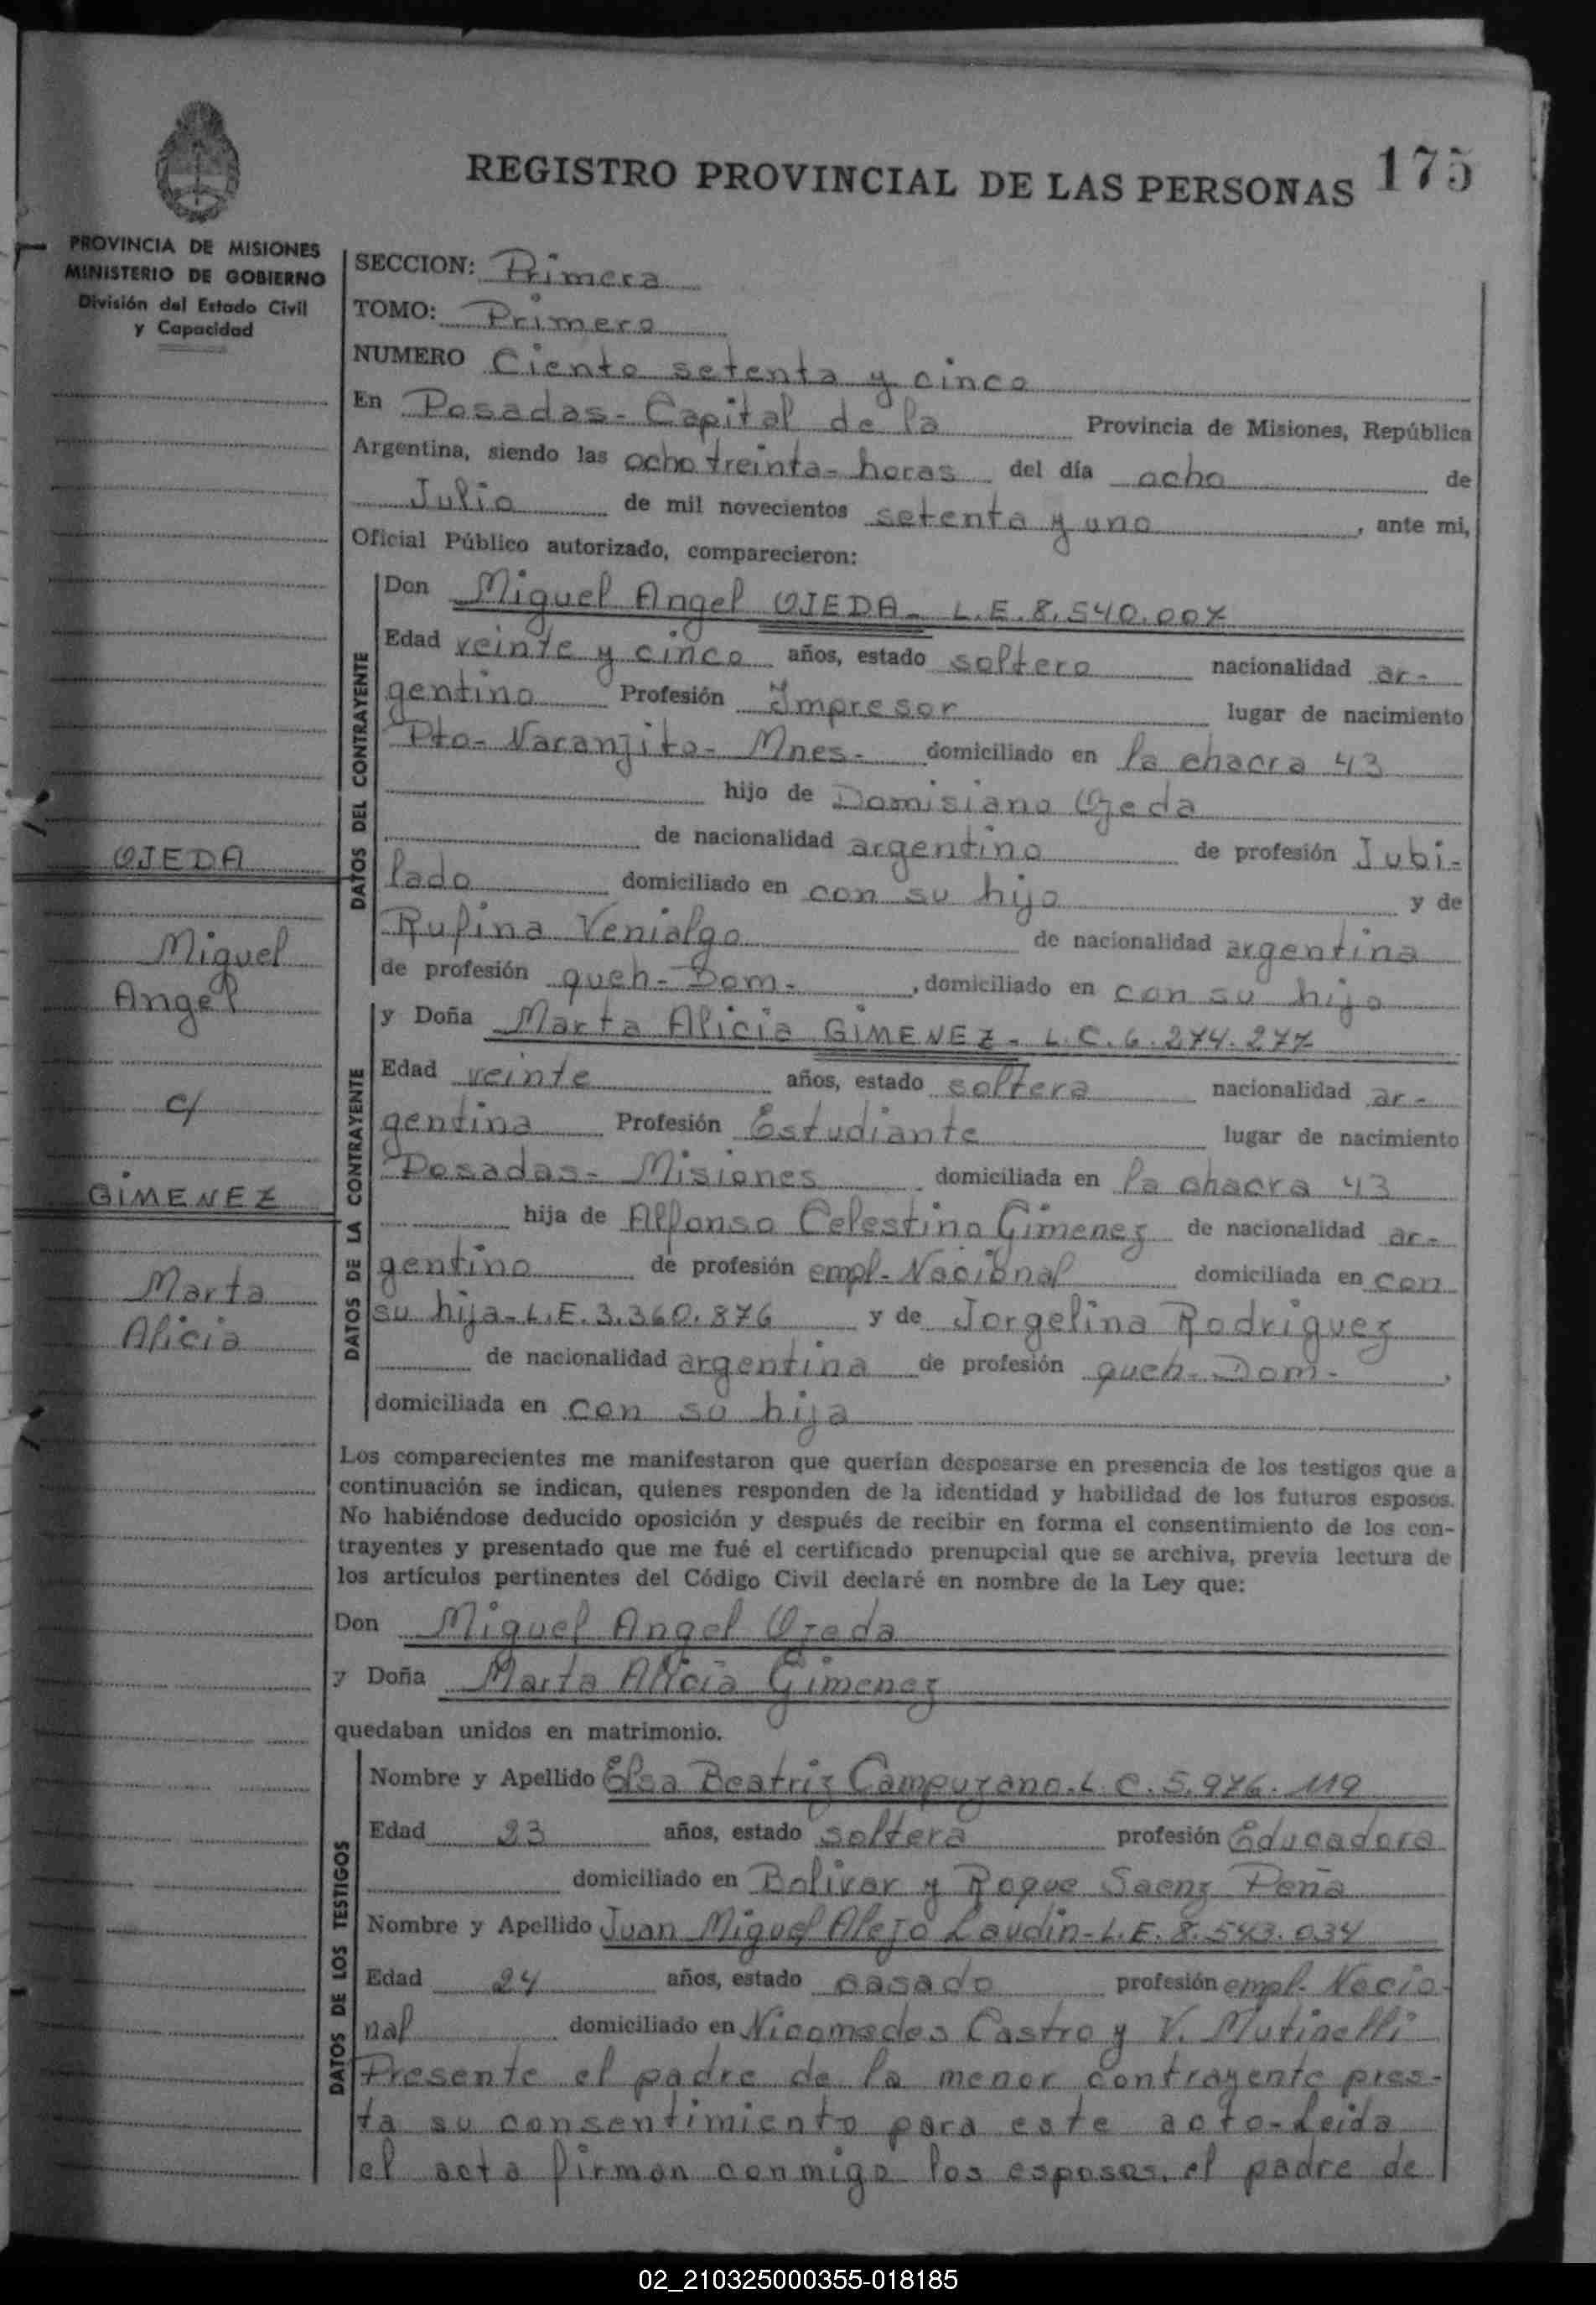 REGISTRO PROVINCIAL DE LAS PERSONAS 175
PROVINCIA DE MISIONES
MINISTERIO DE GOBIERNO
División del Estado Civil
y Capacidad
SECCION: Primera
TOMO: Primero
NUMERO Ciento setenta y cinco
En Posadas - Capital de la Provincia de Misiones, República
Argentina, siendo las ocho treinta - horas del día ocho de
Julio de mil novecientos setenta y uno, ante mi,
Oficial Público autorizado, comparecieron:
DATOS DEL CONTRAYENTE
Don Miguel Angel OJEDA - L.E. 8.540.007
Edad veinte y cinco años, estado soltero nacionalidad ar-
gentino Profesión Impresor lugar de nacimiento
Pto - Naranjito - Mnes - domiciliado en la chacra 43
hijo de Domisiano Ojeda
de nacionalidad argentino de profesión Jubi-
lado domiciliado en con su hijo y de
Rufina Venialgo de nacionalidad argentina
de profesión queh - Dom -, domiciliado en con su hijo
OJEDA
Miguel
Angel
c/
GIMENEZ
Marta
Alicia
DATOS DE LA CONTRAYENTE
y Doña Marta Alicia GIMENEZ - L.C. 6.274.277
Edad veinte años, estado soltera nacionalidad ar-
gentina Profesión Estudiante lugar de nacimiento
Posadas - Misiones domiciliada en la chacra 43
hija de Alfonso Celestino Gimenez de nacionalidad ar-
gentino de profesión empl - Nacional domiciliada en con
su hija - L.E. 3.360.876 y de Jorgelina Rodriguez
de nacionalidad argentina de profesión queh - Dom -,
domiciliada en con su hija
Los comparecientes me manifestaron que querían desposarse en presencia de los testigos que a
continuación se indican, quienes responden de la identidad y habilidad de los futuros esposos.
No habiéndose deducido oposición y después de recibir en forma el consentimiento de los con-
trayentes y presentado que me fué el certificado prenupcial que se archiva, previa lectura de
los artículos pertinentes del Código Civil declaré en nombre de la Ley que:
Don Miguel Angel Ojeda
y Doña Marta Alicia Gimenez
quedaban unidos en matrimonio.
DATOS DE LOS TESTIGOS
Nombre y Apellido Elsa Beatriz Campuzano - L.C. 5.976.119
Edad 23 años, estado soltera profesión Educadora
domiciliado en Bolivar y Roque Saenz Peña
Nombre y Apellido Juan Miguel Alejo Laudin - L.E. 8.543.034
Edad 24 años, estado casado profesión empl - Nacio-
nal domiciliado en Nicomedes Castro y V. Mutinelli
Presente el padre de la menor contrayente pres-
ta su consentimiento para este acto - Leida
el acta firman conmigo los esposos, el padre de
02_210325000355-018185